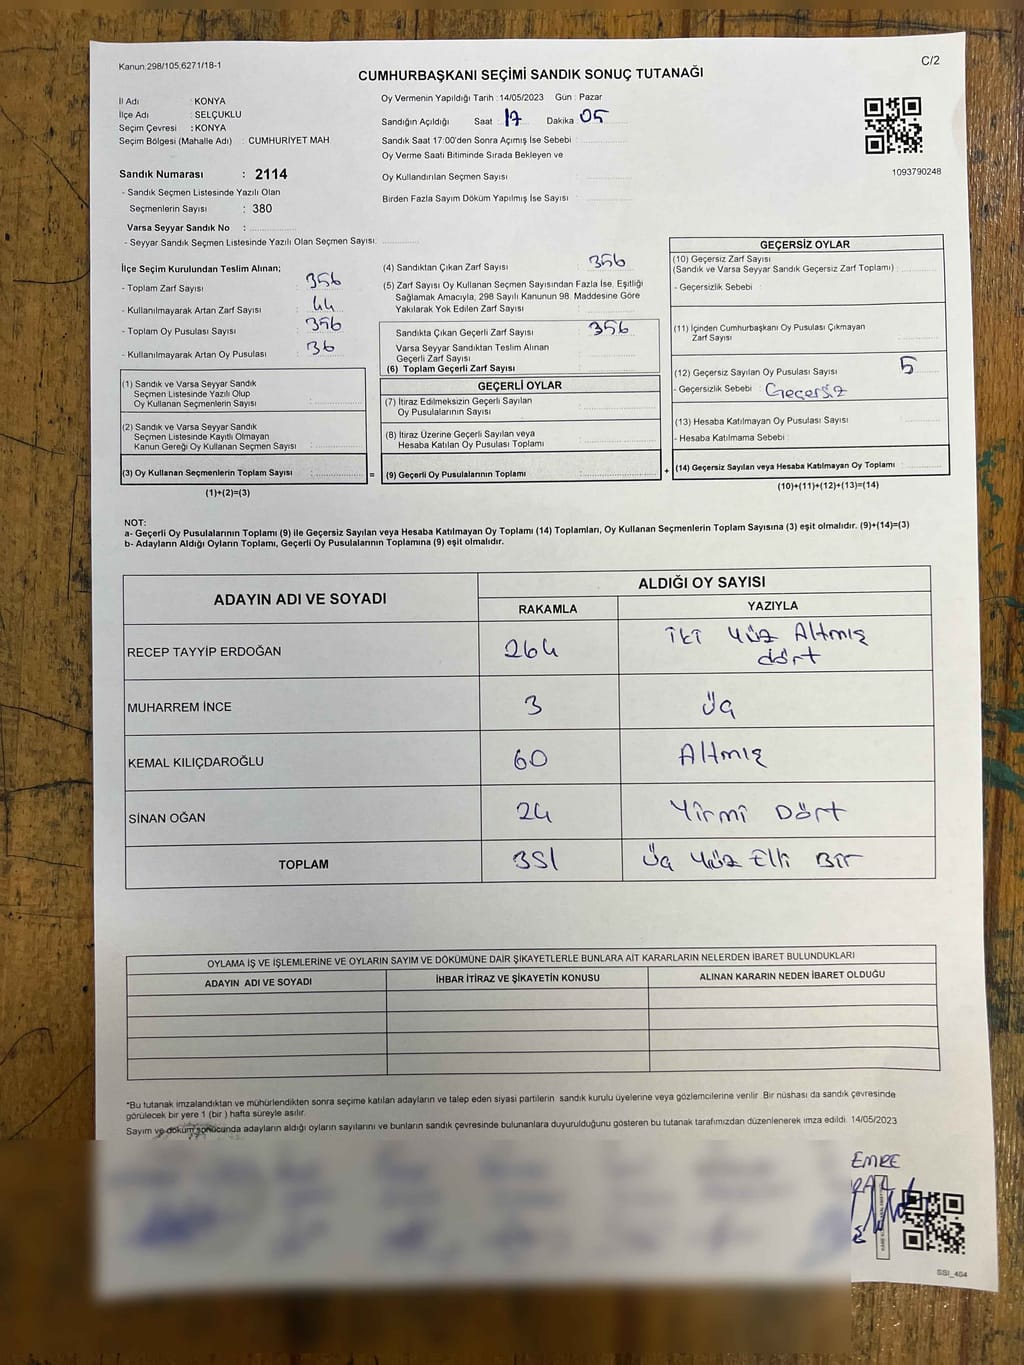 Kanun:298/105,6271/18-1
C/2
CUMHURBAŞKANI SEÇİMİ SANDIK SONUÇ TUTANAĞI
İl Adı : KONYA
İlçe Adı : SELÇUKLU
Seçim Çevresi : KONYA
Seçim Bölgesi (Mahalle Adı) : CUMHURIYET MAH
Oy Vermenin Yapıldığı Tarih : 14/05/2023 Gün : Pazar
Sandığın Açıldığı Saat : 17 Dakika : 05
Sandık Saat 17:00'den Sonra Açımış İse Sebebi :
Oy Verme Saati Bitiminde Sırada Bekleyen ve
Oy Kullandırılan Seçmen Sayısı :
Birden Fazla Sayım Döküm Yapılmış İse Sayısı :
1093790248
Sandık Numarası : 2114
- Sandık Seçmen Listesinde Yazılı Olan
Seçmenlerin Sayısı : 380
Varsa Seyyar Sandık No :
- Seyyar Sandık Seçmen Listesinde Yazılı Olan Seçmen Sayısı:
İlçe Seçim Kurulundan Teslim Alınan;
- Toplam Zarf Sayısı : 356
- Kullanılmayarak Artan Zarf Sayısı : 44
- Toplam Oy Pusulası Sayısı : 356
- Kullanılmayarak Artan Oy Pusulası : 36
(1) Sandık ve Varsa Seyyar Sandık
Seçmen Listesinde Yazılı Olup
Oy Kullanan Seçmenlerin Sayısı :
(2) Sandık ve Varsa Seyyar Sandık
Seçmen Listesinde Kayıtlı Olmayan
Kanun Gereği Oy Kullanan Seçmen Sayısı :
(3) Oy Kullanan Seçmenlerin Toplam Sayısı :
(1)+(2)=(3)
(4) Sandıktan Çıkan Zarf Sayısı : 356
(5) Zarf Sayısı Oy Kullanan Seçmen Sayısından Fazla İse, Eşitliği
Sağlamak Amacıyla, 298 Sayılı Kanunun 98. Maddesine Göre
Yakılarak Yok Edilen Zarf Sayısı :
Sandıkta Çıkan Geçerli Zarf Sayısı : 356
Varsa Seyyar Sandıktan Teslim Alınan
Geçerli Zarf Sayısı :
(6) Toplam Geçerli Zarf Sayısı :
GEÇERLİ OYLAR
(7) İtiraz Edilmeksizin Geçerli Sayılan
Oy Pusulalarının Sayısı :
(8) İtiraz Üzerine Geçerli Sayılan veya
Hesaba Katılan Oy Pusulası Toplamı :
= (9) Geçerli Oy Pusulalarının Toplamı :
GEÇERSİZ OYLAR
(10) Geçersiz Zarf Sayısı
(Sandık ve Varsa Seyyar Sandık Geçersiz Zarf Toplamı) :
- Geçersizlik Sebebi :
(11) İçinden Cumhurbaşkanı Oy Pusulası Çıkmayan
Zarf Sayısı :
(12) Geçersiz Sayılan Oy Pusulası Sayısı : 5
- Geçersizlik Sebebi : Geçersiz
(13) Hesaba Katılmayan Oy Pusulası Sayısı :
- Hesaba Katılmama Sebebi :
+ (14) Geçersiz Sayılan veya Hesaba Katılmayan Oy Toplamı :
(10)+(11)+(12)+(13)=(14)
NOT:
a- Geçerli Oy Pusulalarının Toplamı (9) ile Geçersiz Sayılan veya Hesaba Katılmayan Oy Toplamı (14) Toplamları, Oy Kullanan Seçmenlerin Toplam Sayısına (3) eşit olmalıdır. (9)+(14)=(3)
b- Adayların Aldığı Oyların Toplamı, Geçerli Oy Pusulalarının Toplamına (9) eşit olmalıdır.
ADAYIN ADI VE SOYADI
ALDIĞI OY SAYISI
RAKAMLA YAZIYLA
RECEP TAYYİP ERDOĞAN 264 İki Yüz Altmış dört
MUHARREM İNCE 3 Üç
KEMAL KILIÇDAROĞLU 60 Altmış
SİNAN OĞAN 24 Yirmi Dört
TOPLAM 351 Üç Yüz Elli Bir
OYLAMA İŞ VE İŞLEMLERİNE VE OYLARIN SAYIM VE DÖKÜMÜNE DAİR ŞİKAYETLERLE BUNLARA AİT KARARLARIN NELERDEN İBARET BULUNDUKLARI
ADAYIN ADI VE SOYADI İHBAR İTİRAZ VE ŞİKAYETİN KONUSU ALINAN KARARIN NEDEN İBARET OLDUĞU
*Bu tutanak imzalandıktan ve mühürlendikten sonra seçime katılan adayların ve talep eden siyasi partilerin sandık kurulu üyelerine veya gözlemcilerine verilir .Bir nüshası da sandık çevresinde
görülecek bir yere 1 (bir ) hafta süreyle asılır.
Sayım ve döküm sonucunda adayların aldığı oyların sayılarını ve bunların sandık çevresinde bulunanlara duyurulduğunu gösteren bu tutanak tarafımızdan düzenlenerek imza edildi. 14/05/2023
EMRE
SSI_464